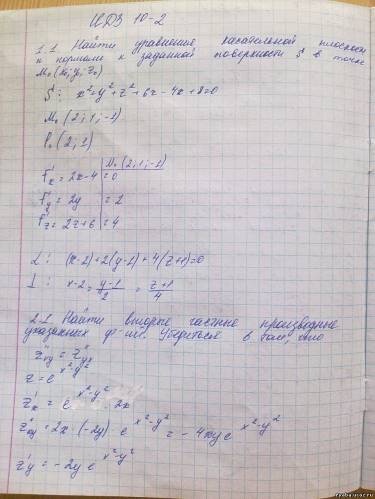 ИДЗ 10-2
1.1 Найти уравнение касательной плоскости
и нормали к заданной поверхности S в точке
M₀ (x₀, y₀, z₀)
S: x²+y²+z²+6z-4x+8=0
M₀ (2; 1; -1)
P₀ (2, 1)
M₀ (2; 1; -1)
F'x = 2x-4 = 0
F'y = 2y = 2
F'z = 2z+6 = 4
(x-2)+2(y-1)+4(z+1)=0
x-2 = y-1/2 = z+1/4
2.1 Найти вторые частные производные
указанных ф-ий. Убедиться в том, что
z''xy = z''yx
z = e^x²-y²
z'x = e^x²-y² · 2x
z''xy = 2x · (-2y) e^x²-y² = -4xy e^x²-y²
z'y = -2y e^x²-y²